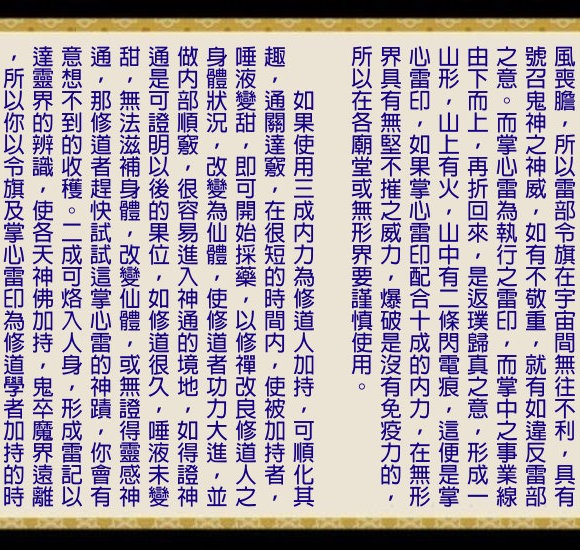 風喪膽，所以雷部令旗在宇宙間無往不利，具有
號召鬼神之神威，如有不敬重，就有如違反雷部
之意。而掌心雷為執行之雷印，而掌中之事業線
由下而上，再折回來，是返璞歸真之意，形成一
山形，山上有火，山中有二條閃電痕，這便是掌
心雷印，如果掌心雷印配合十成的內力，在無形
界具有無堅不摧之威力，爆破是沒有免疫力的，
所以在各廟堂或無形界要謹慎使用。
如果使用三成內力為修道人加持，可順化其
趣，通關達竅，在很短的時間內，使被加持者，
唾液變甜，即可開始採藥，以修禪改良修道人之
身體狀況，改變為仙體，使修道者功力大進，並
做內部順竅，很容易進入神通的境地，如得證神
通是可證明以後的果位，如修道很久，唾液未變
甜，無法滋補身體，改變仙體，或無證得靈感神
通，那修道者趕快試試這掌心雷的神蹟，你會有
意想不到的收穫。二成可烙入人身，形成雷記以
達靈界的辨識，使各天神佛加持，鬼卒魔界遠離
，所以你以令旗及掌心雷印為修道學者加持的時